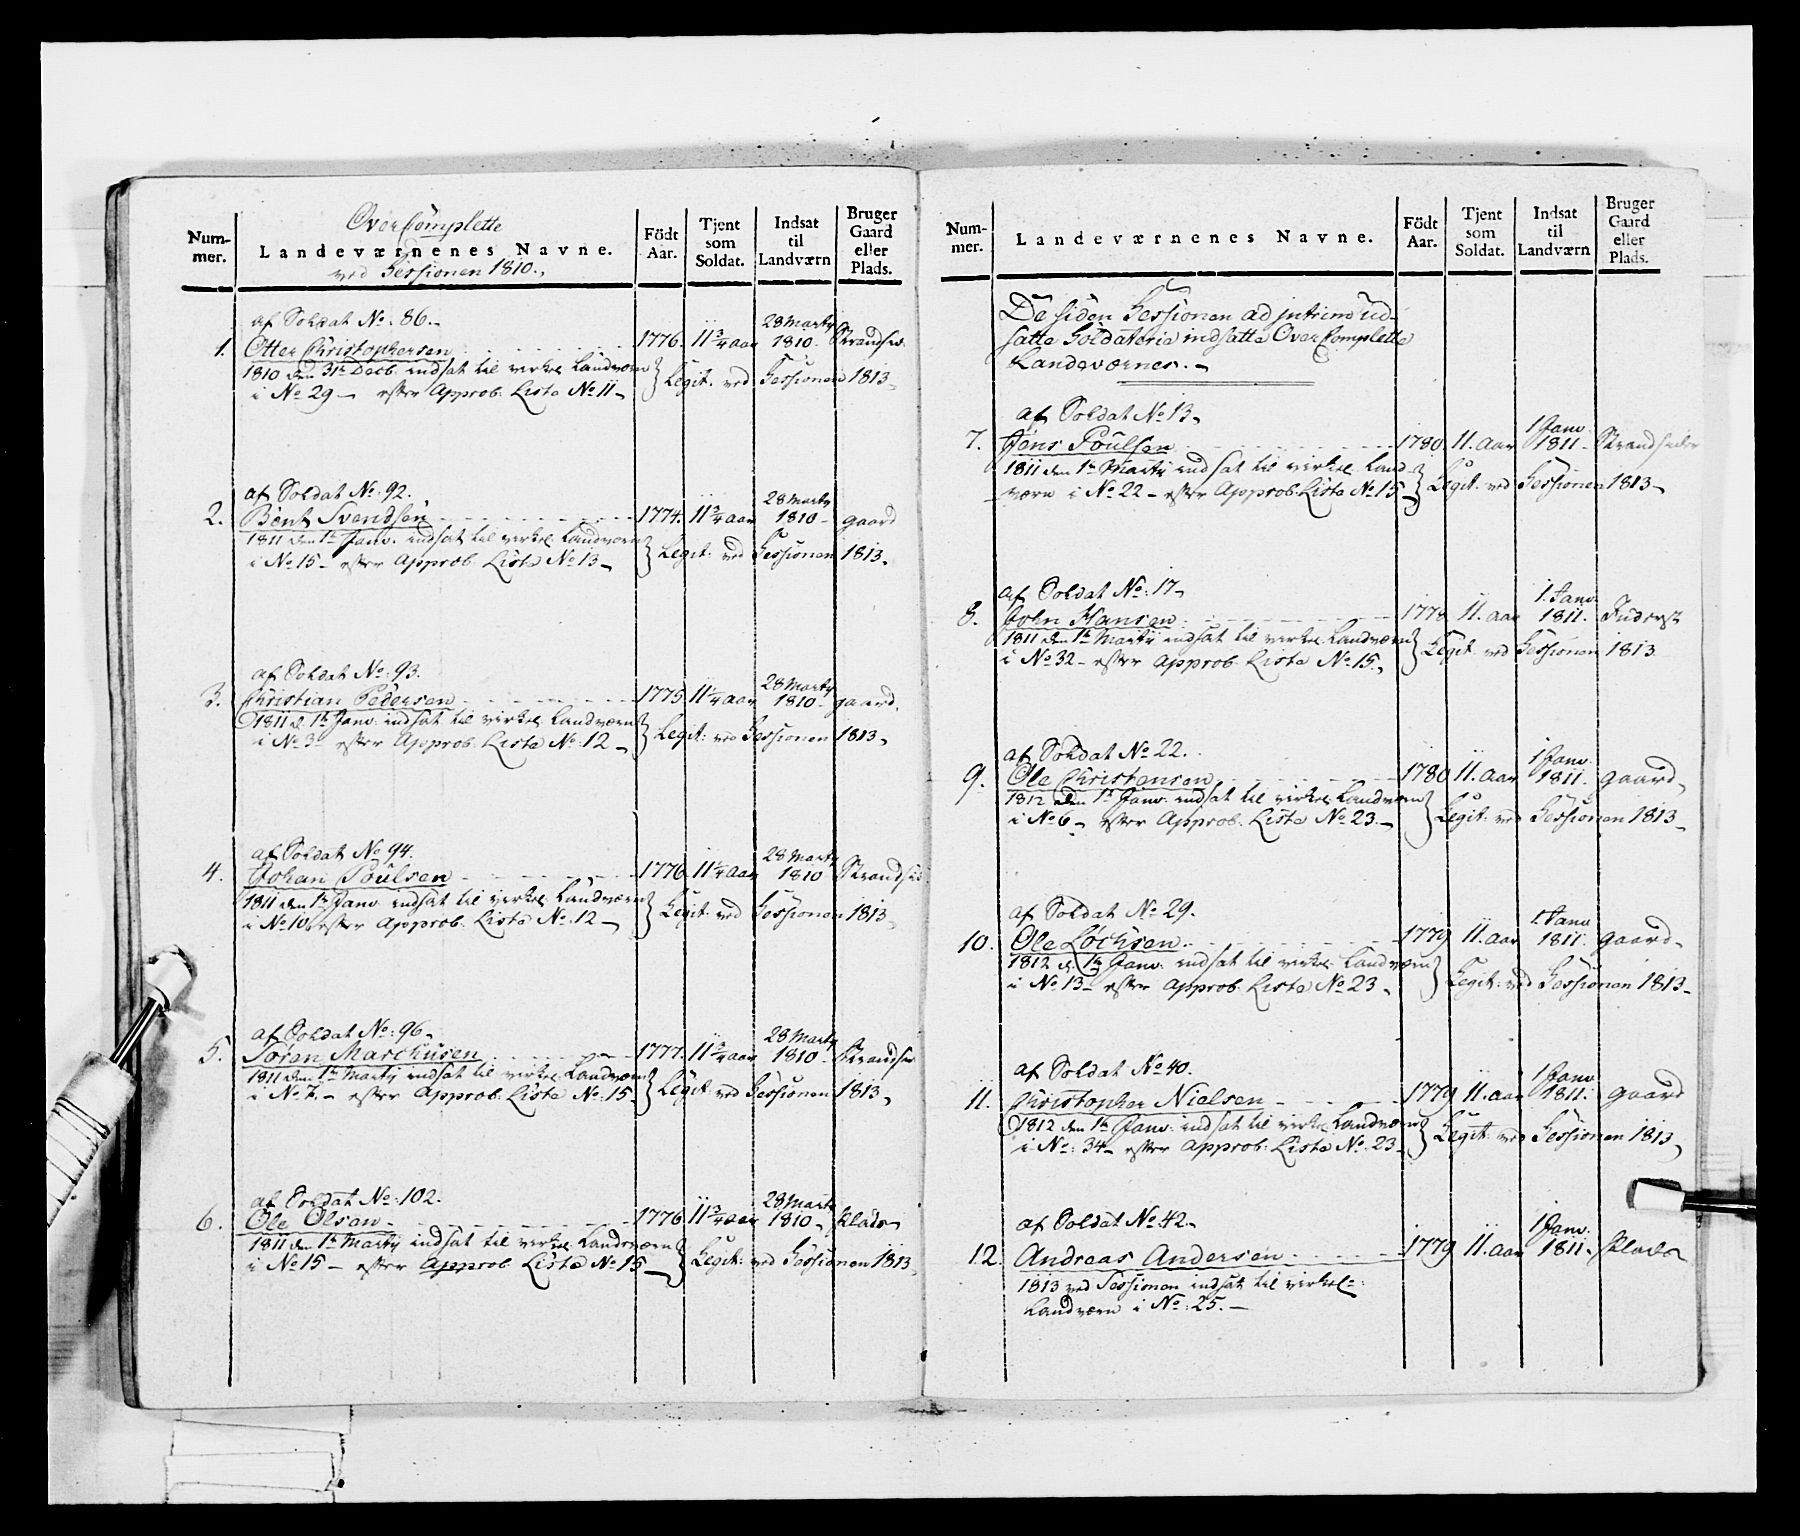 Num-
mer.
OverComplette
Landeværnenes Navne.
ved Sessionen 1810.,
Född
Aar.
Tjent
som
Soldat.
Indsat
til
Landværn
Bruger
Gaard
eller
Plads.
af Soldat No. 86.-
1. Otter Christophersen 1776. 11 3/4 aar 28 Marty 1810. Strandsid.
1810 den 31te Decb. indsat til virkel. Landværn
i No 29 - efter Approb. Liste No 11 - } Legit. ved Sessionen 1813.
af Soldat No. 92.
2. Bent Svendsen 1774. 11 3/4 aar 28 Marty 1810- gaard
1811 den 1te Janv. indsat til virkel. Landværn
i No 15 - efter Approb. Liste No 13 - } Legit. ved Sessionen 1813.
af Soldat No. 93.
3. Christian Pedersen 1775. 11 1/4 aar 28 Marty 1810- gaard.
1811 d. 1te Janv. indsat til virkel. Landværn
i No 3 - efter Approb. Liste No. 12 - } Legit: ved Sessionen 1813.
af Soldat No 94.
4. Johan Poulsen 1776. 11 1/4 aar 28 Marty 1810 Strandsid
1811 den 1te Janv. indsat til virkel. Landværn
i No 10. efter Approb. Liste No. 12 - } Legit. ved Sessionen 1813.
af Soldat No. 96.
5. Søren Marchusen 1777. 11 3/4 aar 28 Marty 1810- Strandsid
1811 den 1te Marty indsat til virkel. Landværn
i No 7. - efter Approb. Liste No. 15 - } Legit. ved Sessionen 1813.
af Soldat No. 102.
6. Ole Olsen 1776. 11 3/4 aar 28 Marty 1810. Plads
1811 den 1te Marty indsat til virkel. Landværn
i No 15 - efter Approb. Liste No 15 - } Legit. ved Sessionen 1813.
Num-
mer.
Landeværnenes Navne.
Född
Aar.
Tjent
som
Soldat.
Indsat
til
Landværn
Bruger
Gaard
eller
Plads.
De siden Sessionen ad jntrim ud-
satte Soldaterie indsatte OverComplette
Landeværner.-
af Soldat No 13.
7. Jens Poulsen 1780. 11. aar 1 Janv. 1811. Strandsider
1811 den 1te Marty indsat til virkel. Land-
værn i No 22 - efter Approb. Liste No 15 - } Legit. ved Sessionen 1813.
af Soldat No. 17.
8. John Hansen 1778 11. aar 1. Janv. 1811. Inderst
1811 den 1te Marty indsat til virkel. Landværn
i No 32 - efter Approb. Liste No. 15. } Legit ved Sessionen 1813
af Soldat No 22.
9. Ole Christensen 1780 11. aar 1 Janv. 1811. gaard.
1812 den 1te Janv. indsat til virkel. Landværn
i No 6 - efter Approb. Liste No 23. - } Legit. ved Sessionen 1813.
af Soldat No 29.
10. Ole Løchsen 1779 11. aar 1. Janv 1811. gaard.
1812 d. 1te Janv. indsat til virkel. Landværn
i No 13 - efter Approb. Liste No 23. } Legit. ved Sessionen 1813.
af Soldat No 40.
11. Christopher Nielsen 1779 11. aar 1 Janv 1811. gaard
1812 den 1te Janv. indsat til virkel. Landværn
i No: 34 - efter Approb. Liste No. 23 - } Legit. ved Sessionen 1813.
af Soldat No 42.
12. Andreas Andersen 1779 11. aar 1 Janv. 1811. Plads
1813 ved Sessionen indsat til virkel:
Landværn i No: 25. -